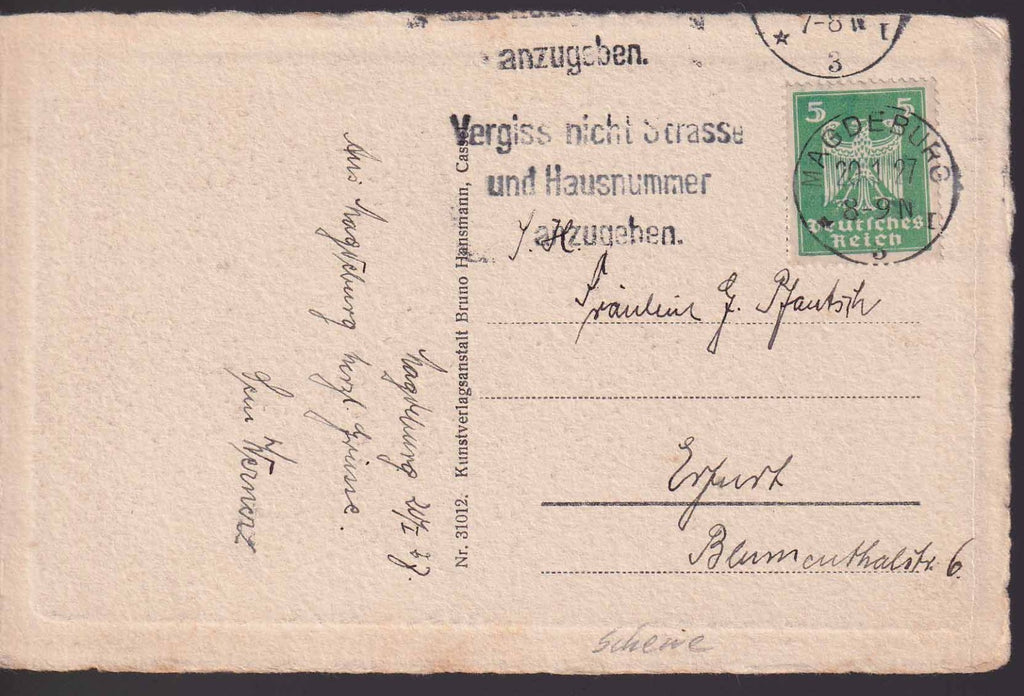 anzugeben.
7-8 N
I
3
Vergiss nicht Strasse
und Hausnummer
anzugeben.
5 5
Deutsches
Reich
MAGDEBURG
20.1.27
8-9 N
I
3
I. H.
Fräulein J. Pfautsch
Erfurt
Blumenthalstr. 6.
Magdeburg 20/I 27.
Aus Magdeburg herzl. Grüsse.
Dein Werner
Nr. 31012. Kunstverlagsanstalt Bruno Hansmann, Cassel